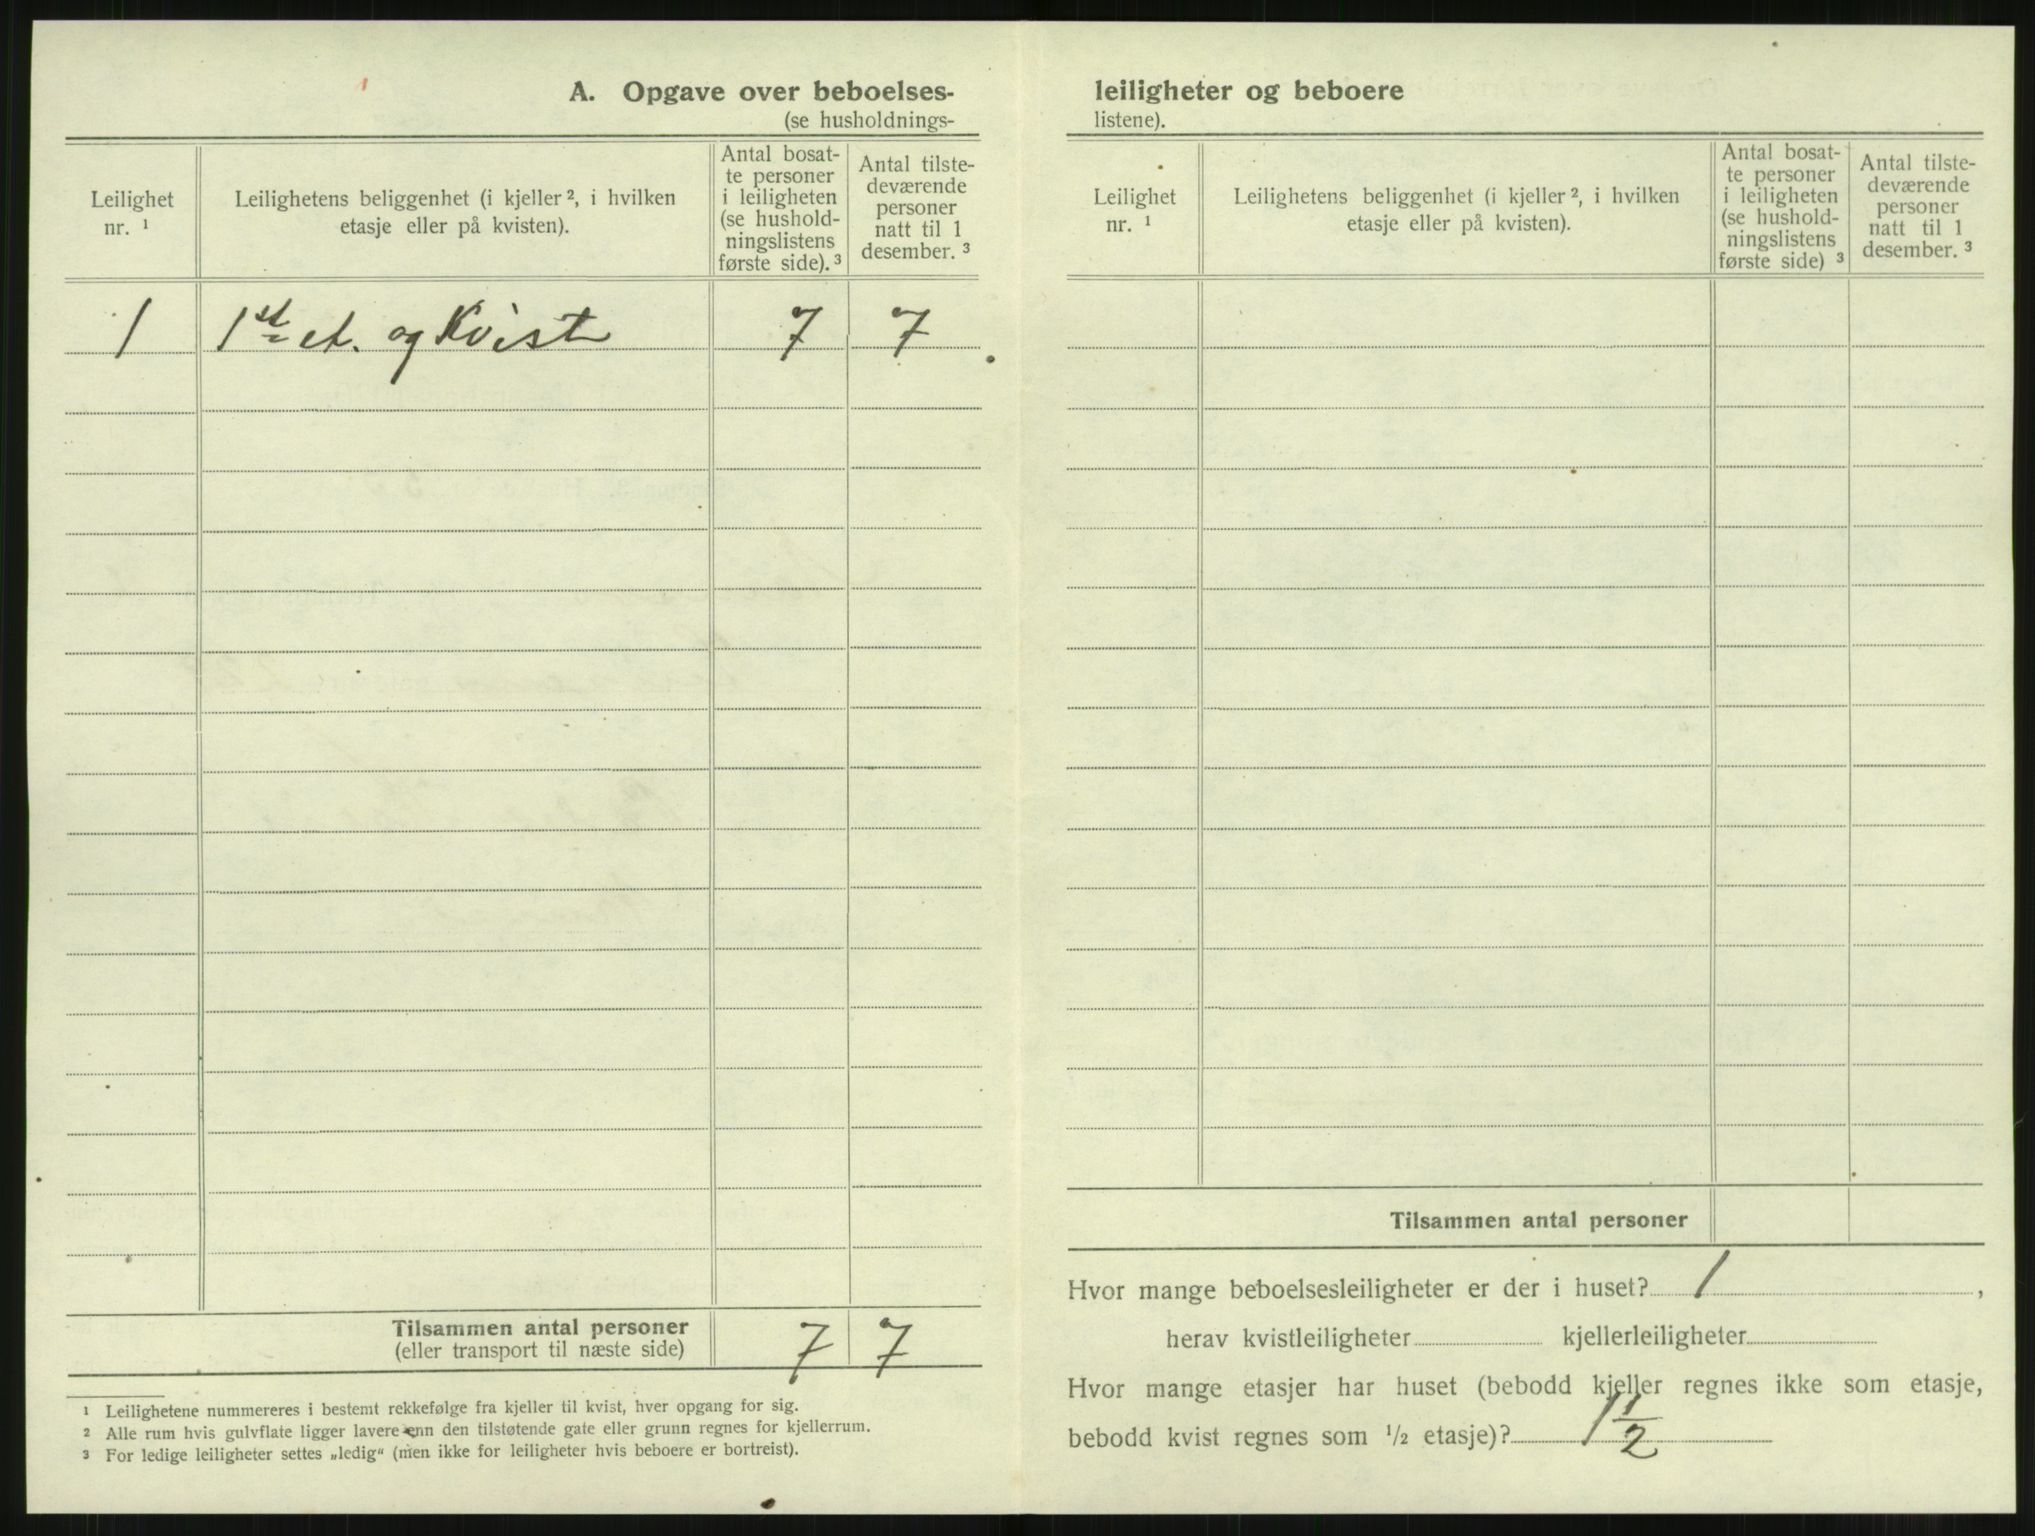 A. Opgave over beboelses-
(se husholdnings-
Leilighet
nr. ¹
Leilighetens beliggenhet (i kjeller ², i hvilken
etasje eller på kvisten).
Antal bosat-
te personer
i leiligheten
(se hushold-
ningslistens
første side). ³
Antal tilste-
deværende
personer
natt til 1
desember. ³
1 1ste et. og Kvist 7 7
Tilsammen antal personer 7 7
(eller transport til næste side)
¹ Leilighetene nummereres i bestemt rekkefølge fra kjeller til kvist, hver opgang for sig.
² Alle rum hvis gulvflate ligger lavere enn den tilstøtende gate eller grunn regnes for kjellerrum.
³ For ledige leiligheter settes „ledig“ (men ikke for leiligheter hvis beboere er bortreist).
leiligheter og beboere
listene).
Leilighet
nr. ¹
Leilighetens beliggenhet (i kjeller ², i hvilken
etasje eller på kvisten).
Antal bosat-
te personer
i leiligheten
(se hushold-
ningslistens
første side) ³
Antal tilste-
deværende
personer
natt til 1
desember. ³
Tilsammen antal personer
Hvor mange beboelsesleiligheter er der i huset? 1 ,
herav kvistleiligheter kjellerleiligheter
Hvor mange etasjer har huset (bebodd kjeller regnes ikke som etasje,
bebodd kvist regnes som ½ etasje)? 1 ½